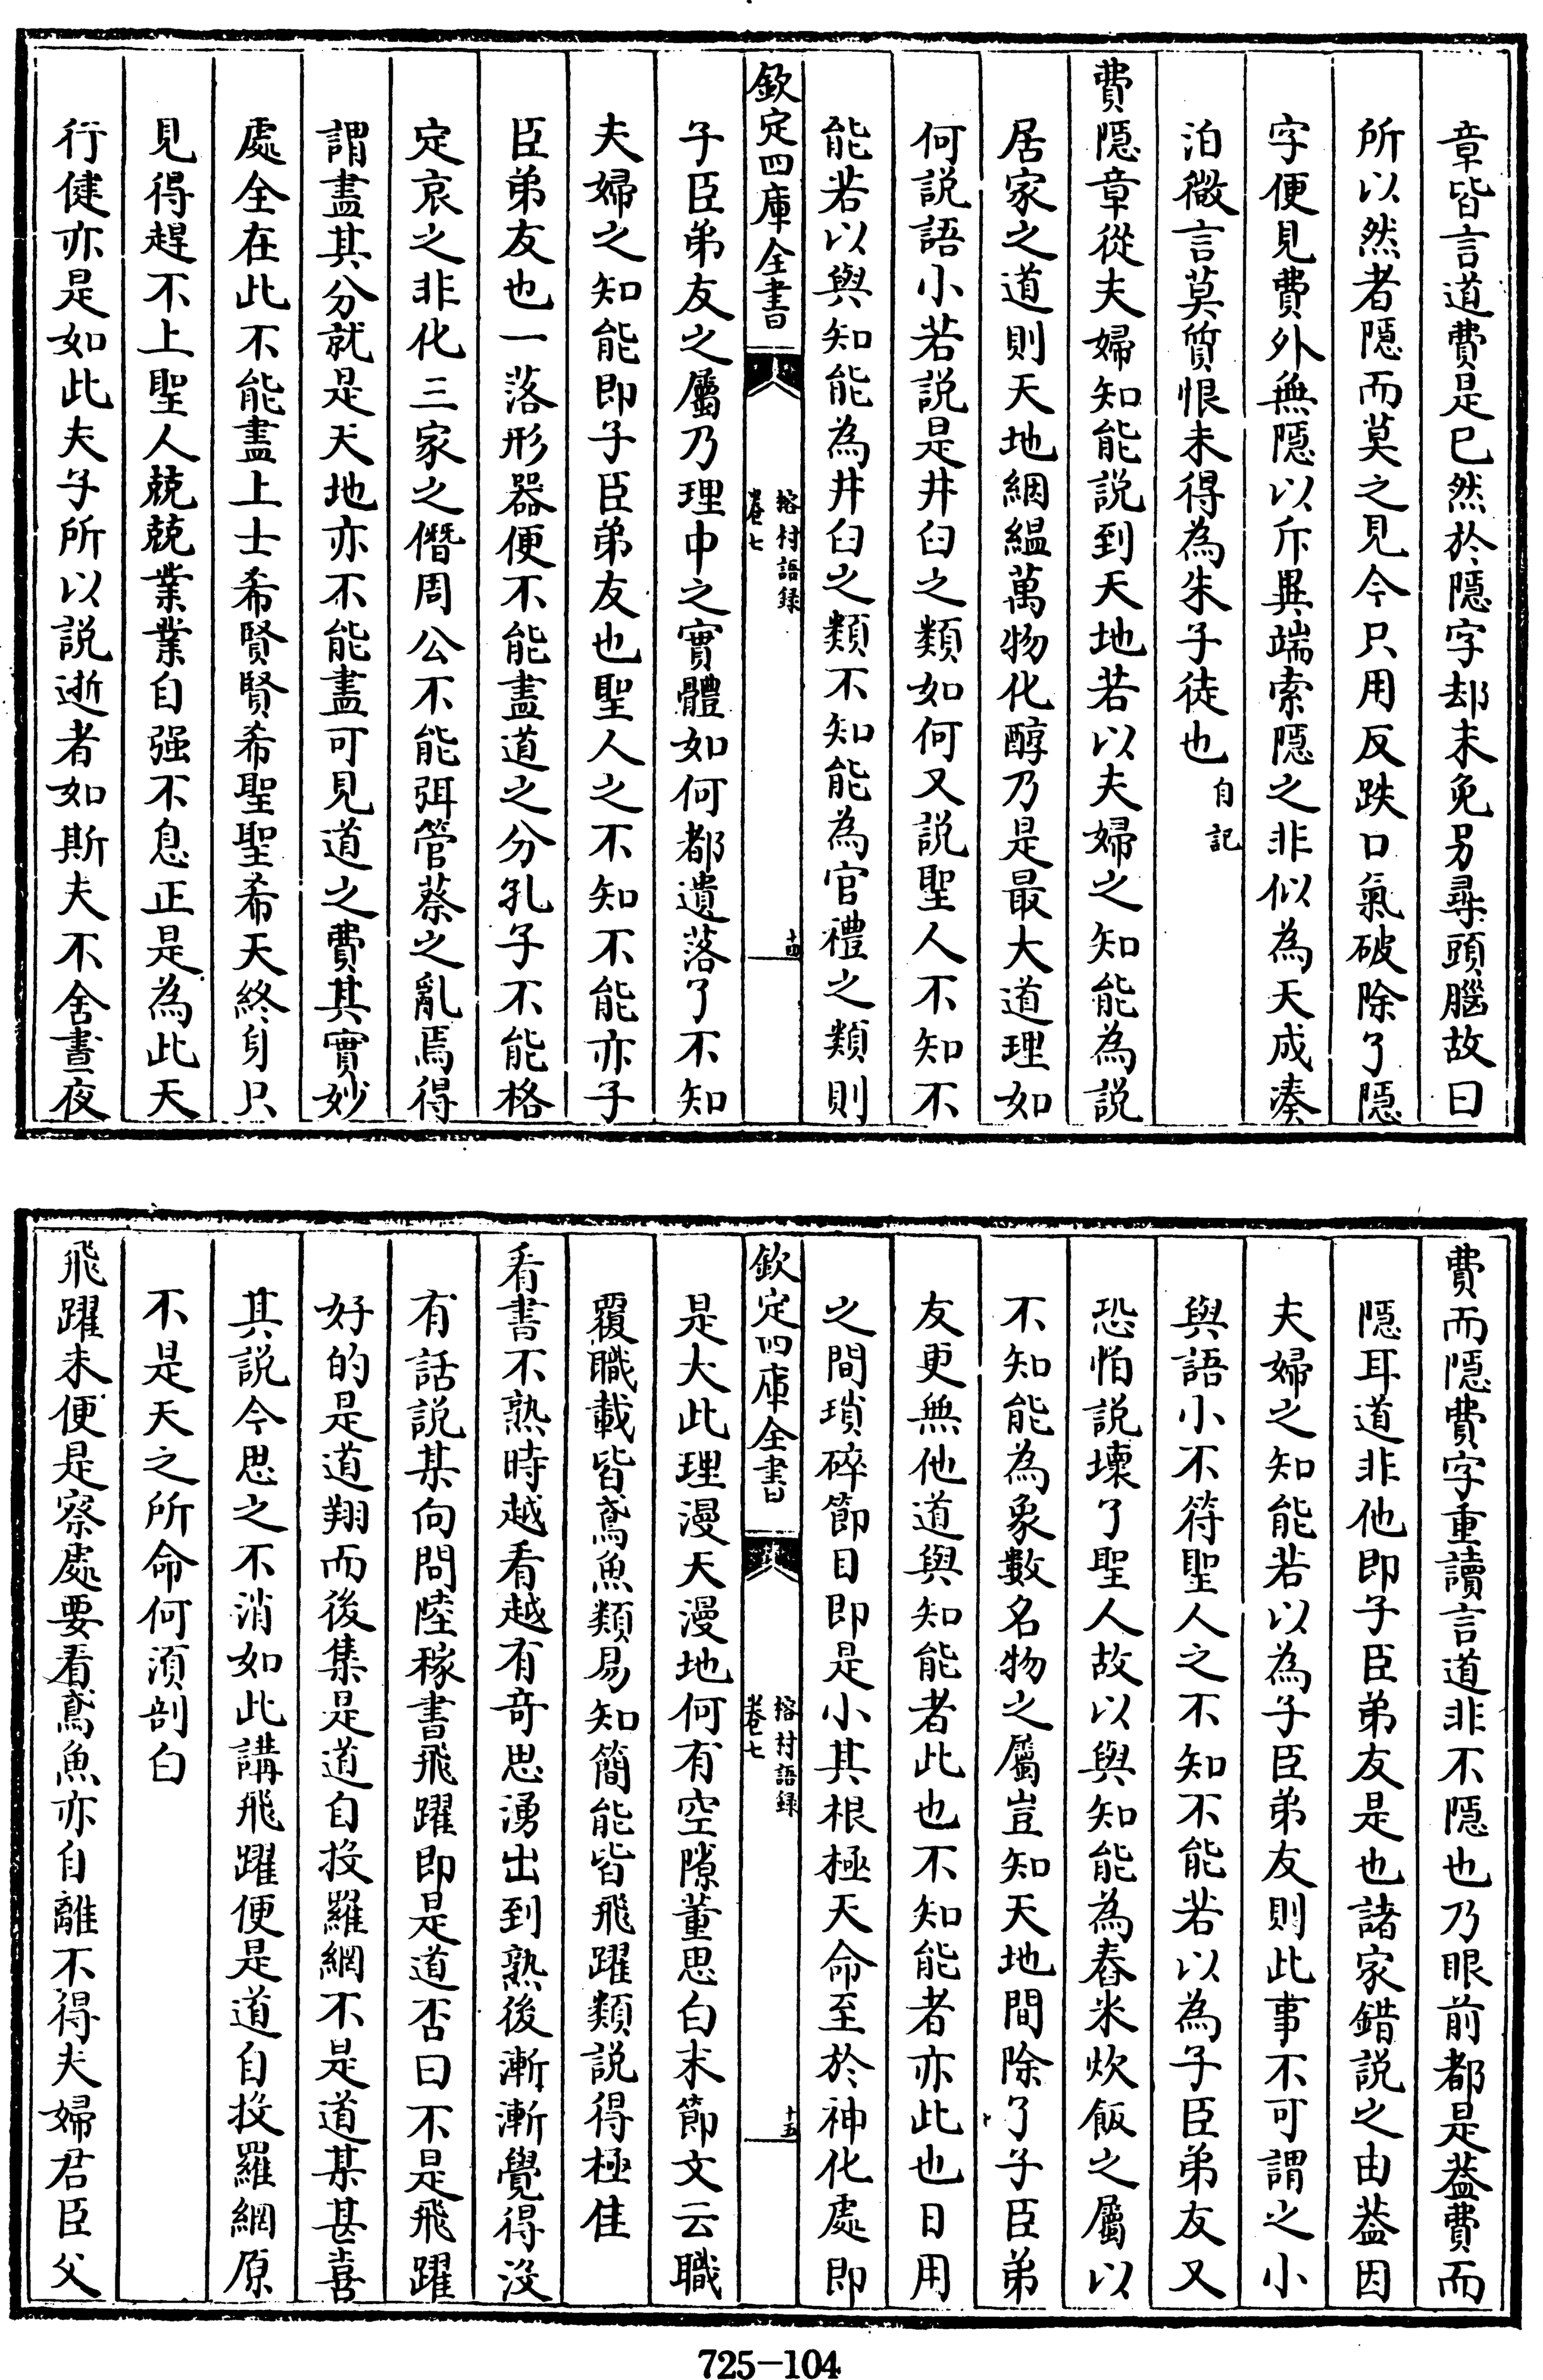 章皆言道費是已然於隱字却未免另尋頭腦故曰
所以然者隱而莫之見今只用反跌口氣破除了隱
字便見費外無隱以斥異端索隱之非似為天成湊
泊微言莫質恨未得為朱子徒也自記
費隱章從夫婦知能説到天地若以夫婦之知能為説
居家之道則天地絪縕萬物化醇乃是最大道理如
何説語小若説是井臼之類如何又説聖人不知不
能若以與知能為井臼之類不知能為官禮之類則
欽定四庫全書
榕村語録
卷七
十四
子臣弟友之屬乃理中之實體如何都遺落了不知
夫婦之知能即子臣弟友也聖人之不知不能亦子
臣弟友也一落形器便不能盡道之分孔子不能格
定哀之非化三家之僭周公不能弭管蔡之亂焉得
謂盡其分就是天地亦不能盡可見道之費其實妙
處全在此不能盡上士希賢賢希聖聖希天終身只
見得趕不上聖人兢兢業業自强不息正是為此天
行健亦是如此夫子所以説逝者如斯夫不舍晝夜
費而隱費字重讀言道非不隱也乃眼前都是葢費而
隱耳道非他即子臣弟友是也諸家錯説之由葢因
夫婦之知能若以為子臣弟友則此事不可謂之小
與語小不符聖人之不知不能若以為子臣弟友又
恐怕説壞了聖人故以與知能為舂米炊飯之屬以
不知能為象數名物之屬豈知天地間除了子臣弟
友更無他道與知能者此也不知能者亦此也日用
之間瑣碎節目即是小其根極天命至於神化處即
欽定四庫全書
榕村語録
卷七
十五
是大此理漫天漫地何有空隙董思白末節文云職
覆職載皆鳶魚類易知簡能皆飛躍類説得極佳
看書不熟時越看越有奇思湧出到熟後漸漸覺得沒
有話説某向問陸稼書飛躍即是道否曰不是飛躍
好的是道翔而後集是道自投羅網不是道某甚喜
其説今思之不消如此講飛躍便是道自投羅網原
不是天之所命何須剖白
飛躍未便是察處要看鳶魚亦自離不得夫婦君臣父
725-104